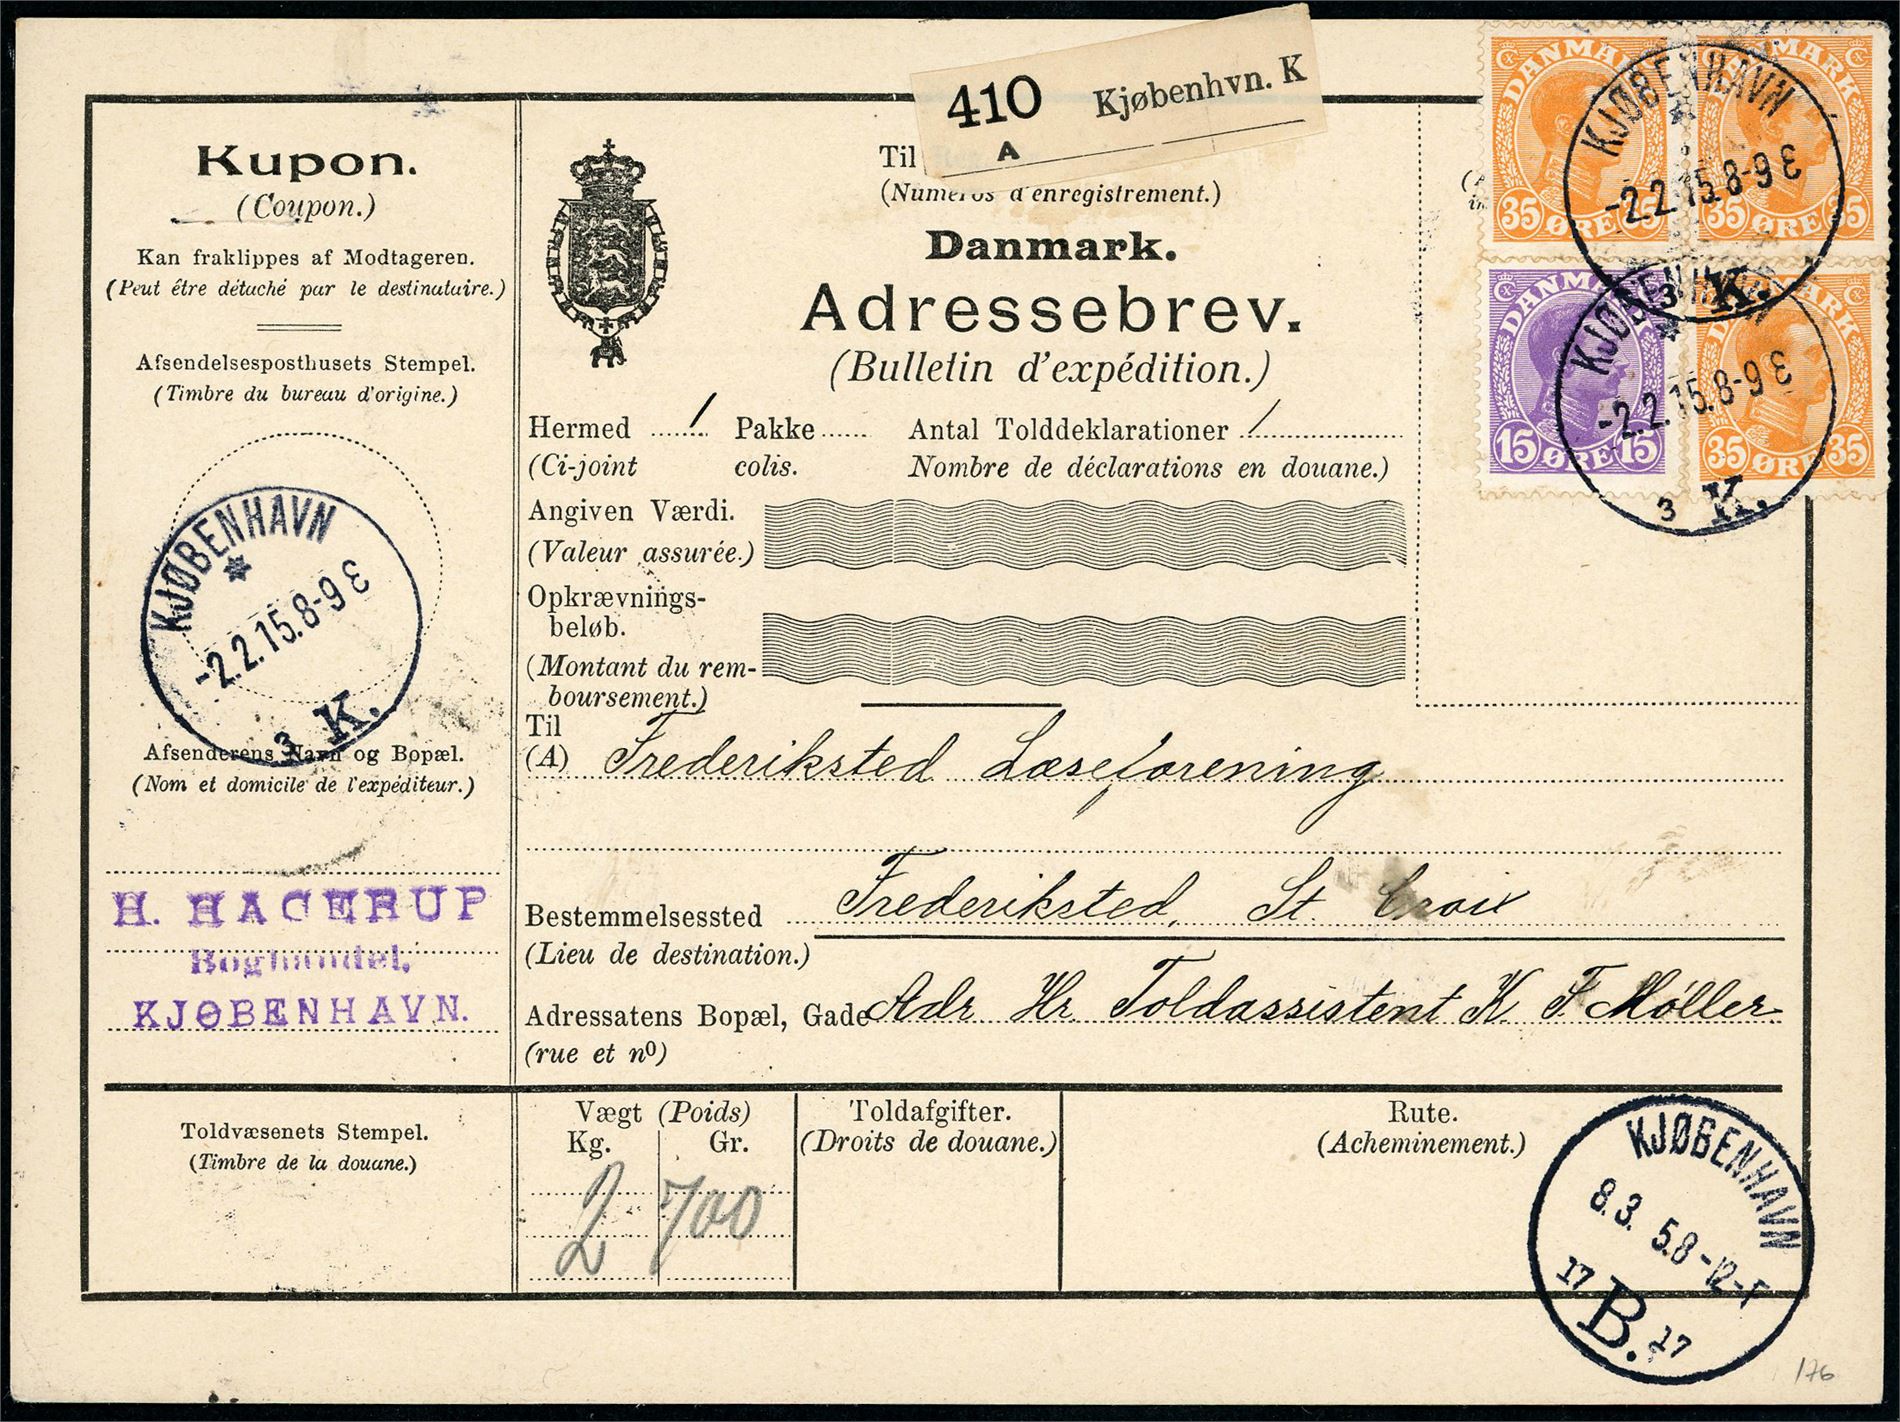 410 Kjøbenhvn. K
A
Kupon.
(Coupon.)
Kan fraklippes af Modtageren.
(Peut être détaché par le destinataire.)
Afsendelsesposthusets Stempel.
(Timbre du bureau d'origine.)
KJØBENHAVN
-2.2.15. 8-9 E
3 K.
Afsenderens Navn og Bopæl.
(Nom et domicile de l'expéditeur.)
H. HAGERUP
Boghandel,
KJØBENHAVN.
Toldvæsenets Stempel.
(Timbre de la douane.)
Til
(Numéros d'enregistrement.)
Danmark.
Adressebrev.
(Bulletin d'expédition.)
Hermed 1 Pakke Antal Tolddeklarationer 1
(Ci-joint colis. Nombre de déclarations en douane.)
Angiven Værdi.
(Valeur assurée.)
Opkrævnings-
beløb.
(Montant du rem-
boursement.)
Til
(A) Frederiksted Læseforening
Bestemmelsessted Frederiksted, St. Croix
(Lieu de destination.)
Adressatens Bopæl, Gade Adr Hr. Toldassistent K. F. Møller
(rue et nº)
Vægt (Poids)
Kg. Gr.
2 700
Toldafgifter.
(Droits de douane.)
Rute.
(Acheminement.)
DANMARK
35 ØRE 35
DANMARK
35 ØRE 35
DANMARK
15 ØRE 15
DANMARK
35 ØRE 35
KJØBENHAVN
-2.2.15. 8-9 E
3 K.
KJØBENHAVN
-2.2.15. 8-9 E
3 K.
KJØBENHAVN
8.3. 5.8-12-F
17 B. 17
176